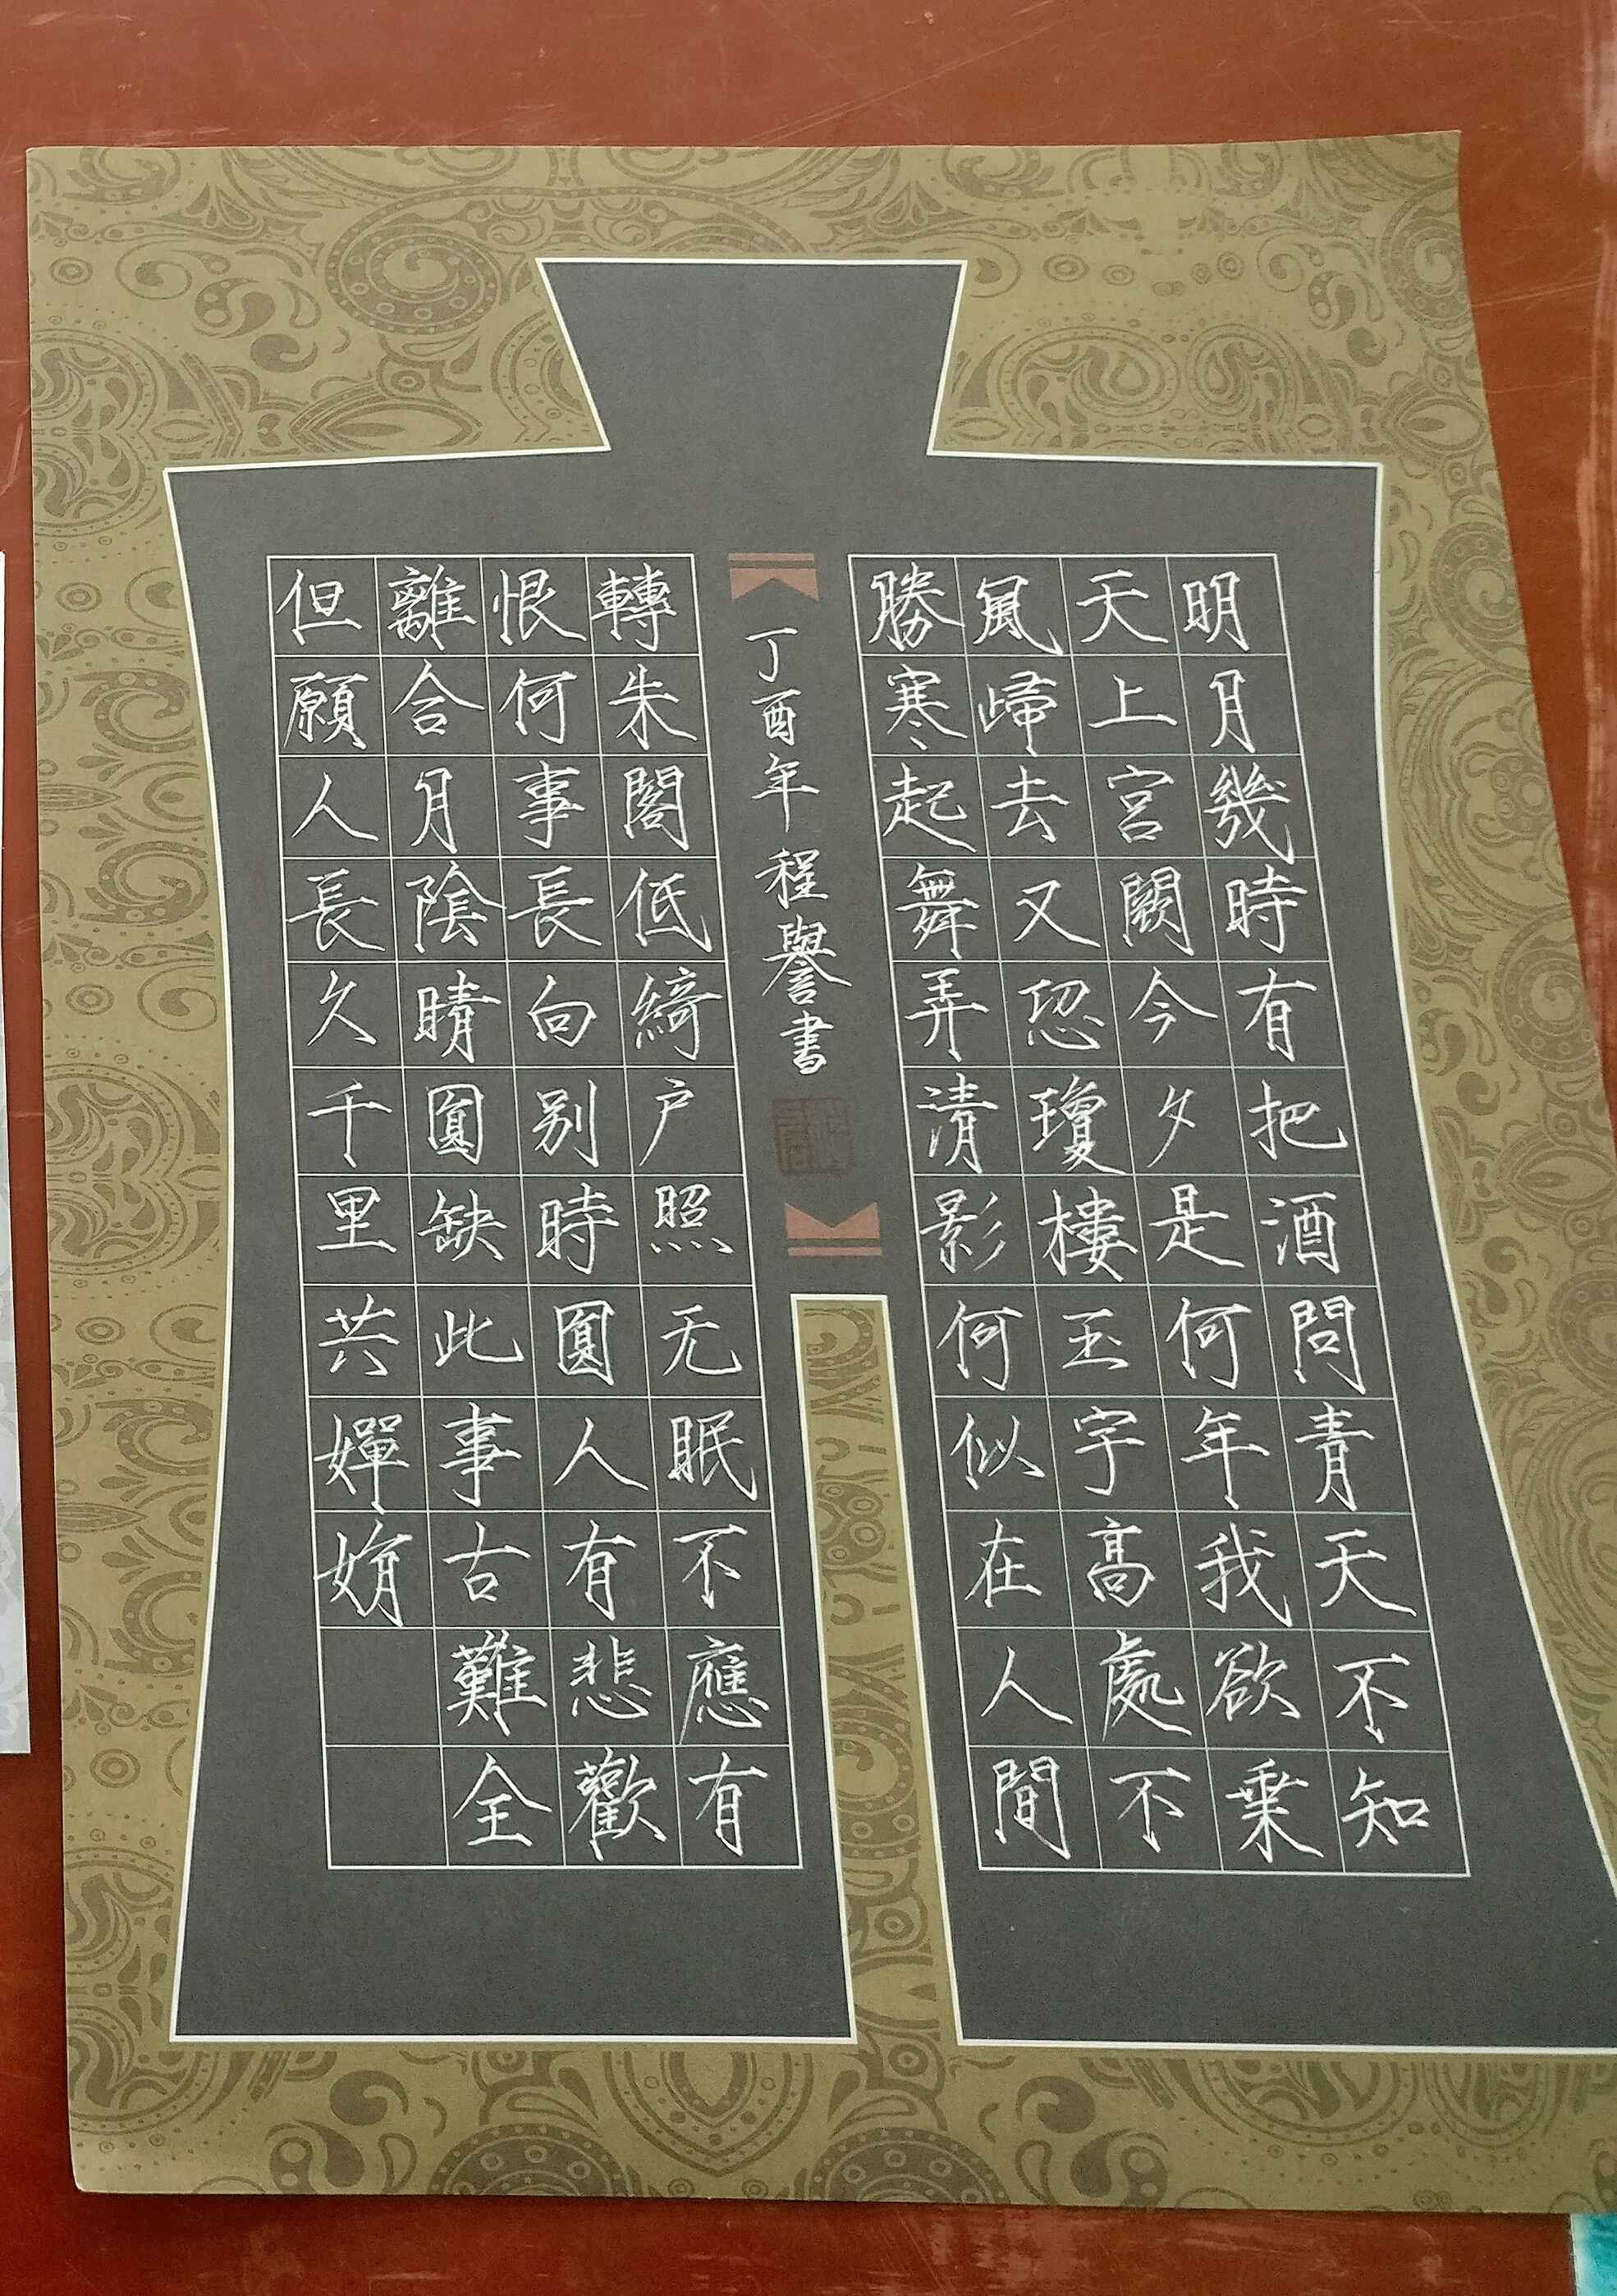 明月幾時有把酒問青天不知
天上宮闕今夕是何年我欲乗
風歸去又恐瓊樓玉宇高處不
勝寒起舞弄清影何似在人間
丁酉年程譽書
轉朱閣低綺户照无眠不應有
恨何事長向别時圓人有悲歡
離合月陰晴圓缺此事古難全
但願人長久千里共嬋娟